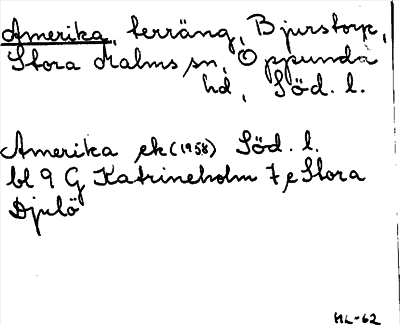 Amerika, terräng, Bjurstorp,
Stora Malms sn, Oppunda
hd, Söd. l.
Amerika ek (1958) Söd. l.
bl 9 G Katrineholm 7 e Stora
Djulö
ML-62